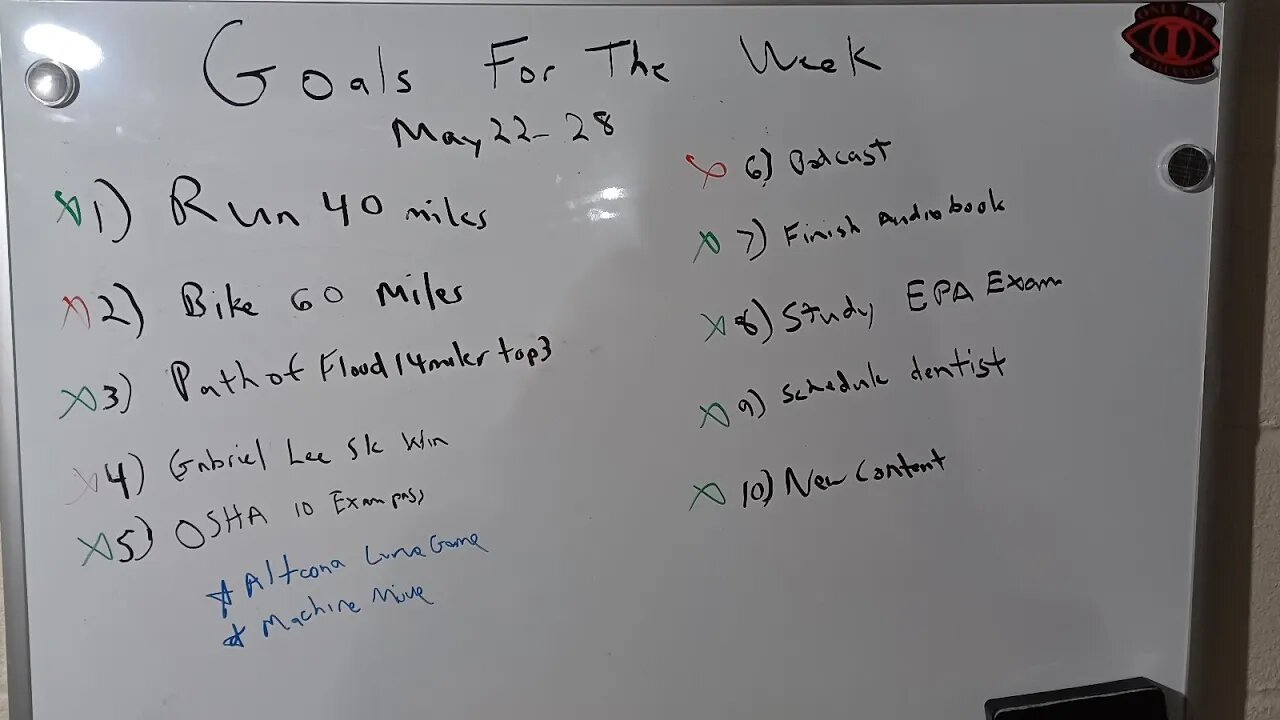 Goals For The Week
May 22-28
X 1) Run 40 miles
X 2) Bike 60 Miles
X 3) Path of Flood 14miler top3
X 4) Gabriel Lee 5k Win
X 5) OSHA 10 Exam pass
* Altoona Curve Game
* Machine Move
X 6) Podcast
X 7) Finish Audiobook
X 8) Study EPA Exam
X 9) Schedule dentist
X 10) New Content
ONLY EYE